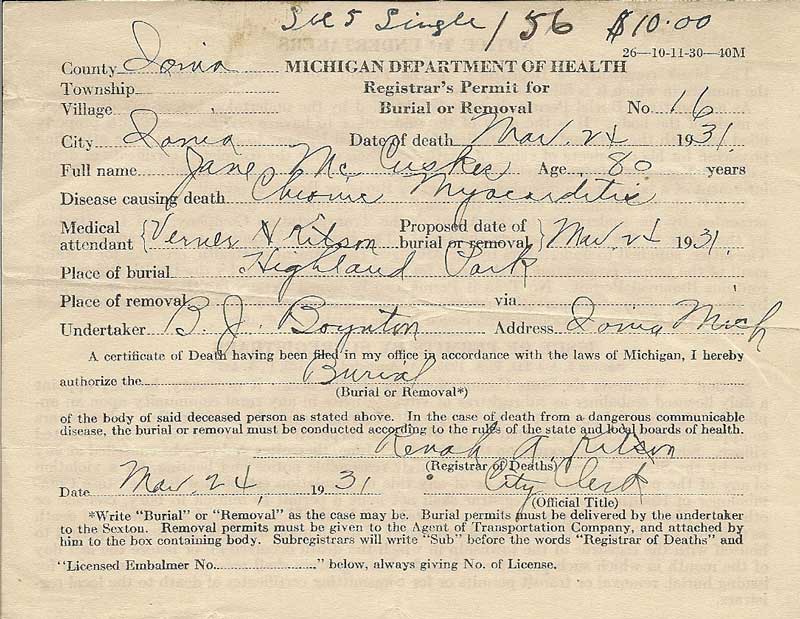 Single / 56 $10.00
26—10-11-30—40M
County Ionia MICHIGAN DEPARTMENT OF HEALTH
Township Registrar's Permit for
Village Burial or Removal No. 16
City Ionia Date of death Mar. 24 1931.
Full name Jane McCusker Age 80 years
Disease causing death Chronic Myocarditis
Medical attendant } Verner H Kitson Proposed date of burial or removal } Mar. 24 1931.
Place of burial Highland Park
Place of removal via
Undertaker B. J. Boynton Address Ionia Mich
A certificate of Death having been filed in my office in accordance with the laws of Michigan, I hereby
authorize the Burial
(Burial or Removal*)
of the body of said deceased person as stated above. In the case of death from a dangerous communicable
disease, the burial or removal must be conducted according to the rules of the state and local boards of health.
Renah A. Kitson
(Registrar of Deaths)
Date Mar. 24, 1931 City Clerk
(Official Title)
*Write "Burial" or "Removal" as the case may be. Burial permits must be delivered by the undertaker
to the Sexton. Removal permits must be given to the Agent of Transportation Company, and attached by
him to the box containing body. Subregistrars will write "Sub" before the words "Registrar of Deaths" and
"Licensed Embalmer No. " below, always giving No. of License.